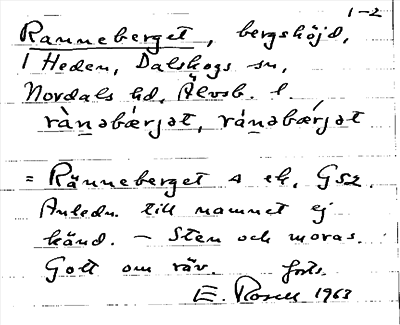 1-2
Ranneberget, bergshöjd,
1 Heden, Dalskogs sn,
Nordals hd, Älvsb. l.
rànəbærjət, ránəbærjət
= Ränneberget 4 ek. GSZ.
Anledn. till namnet ej
känd. – Sten och moras.
Gott om räv. forts.
E. Rosell 1963